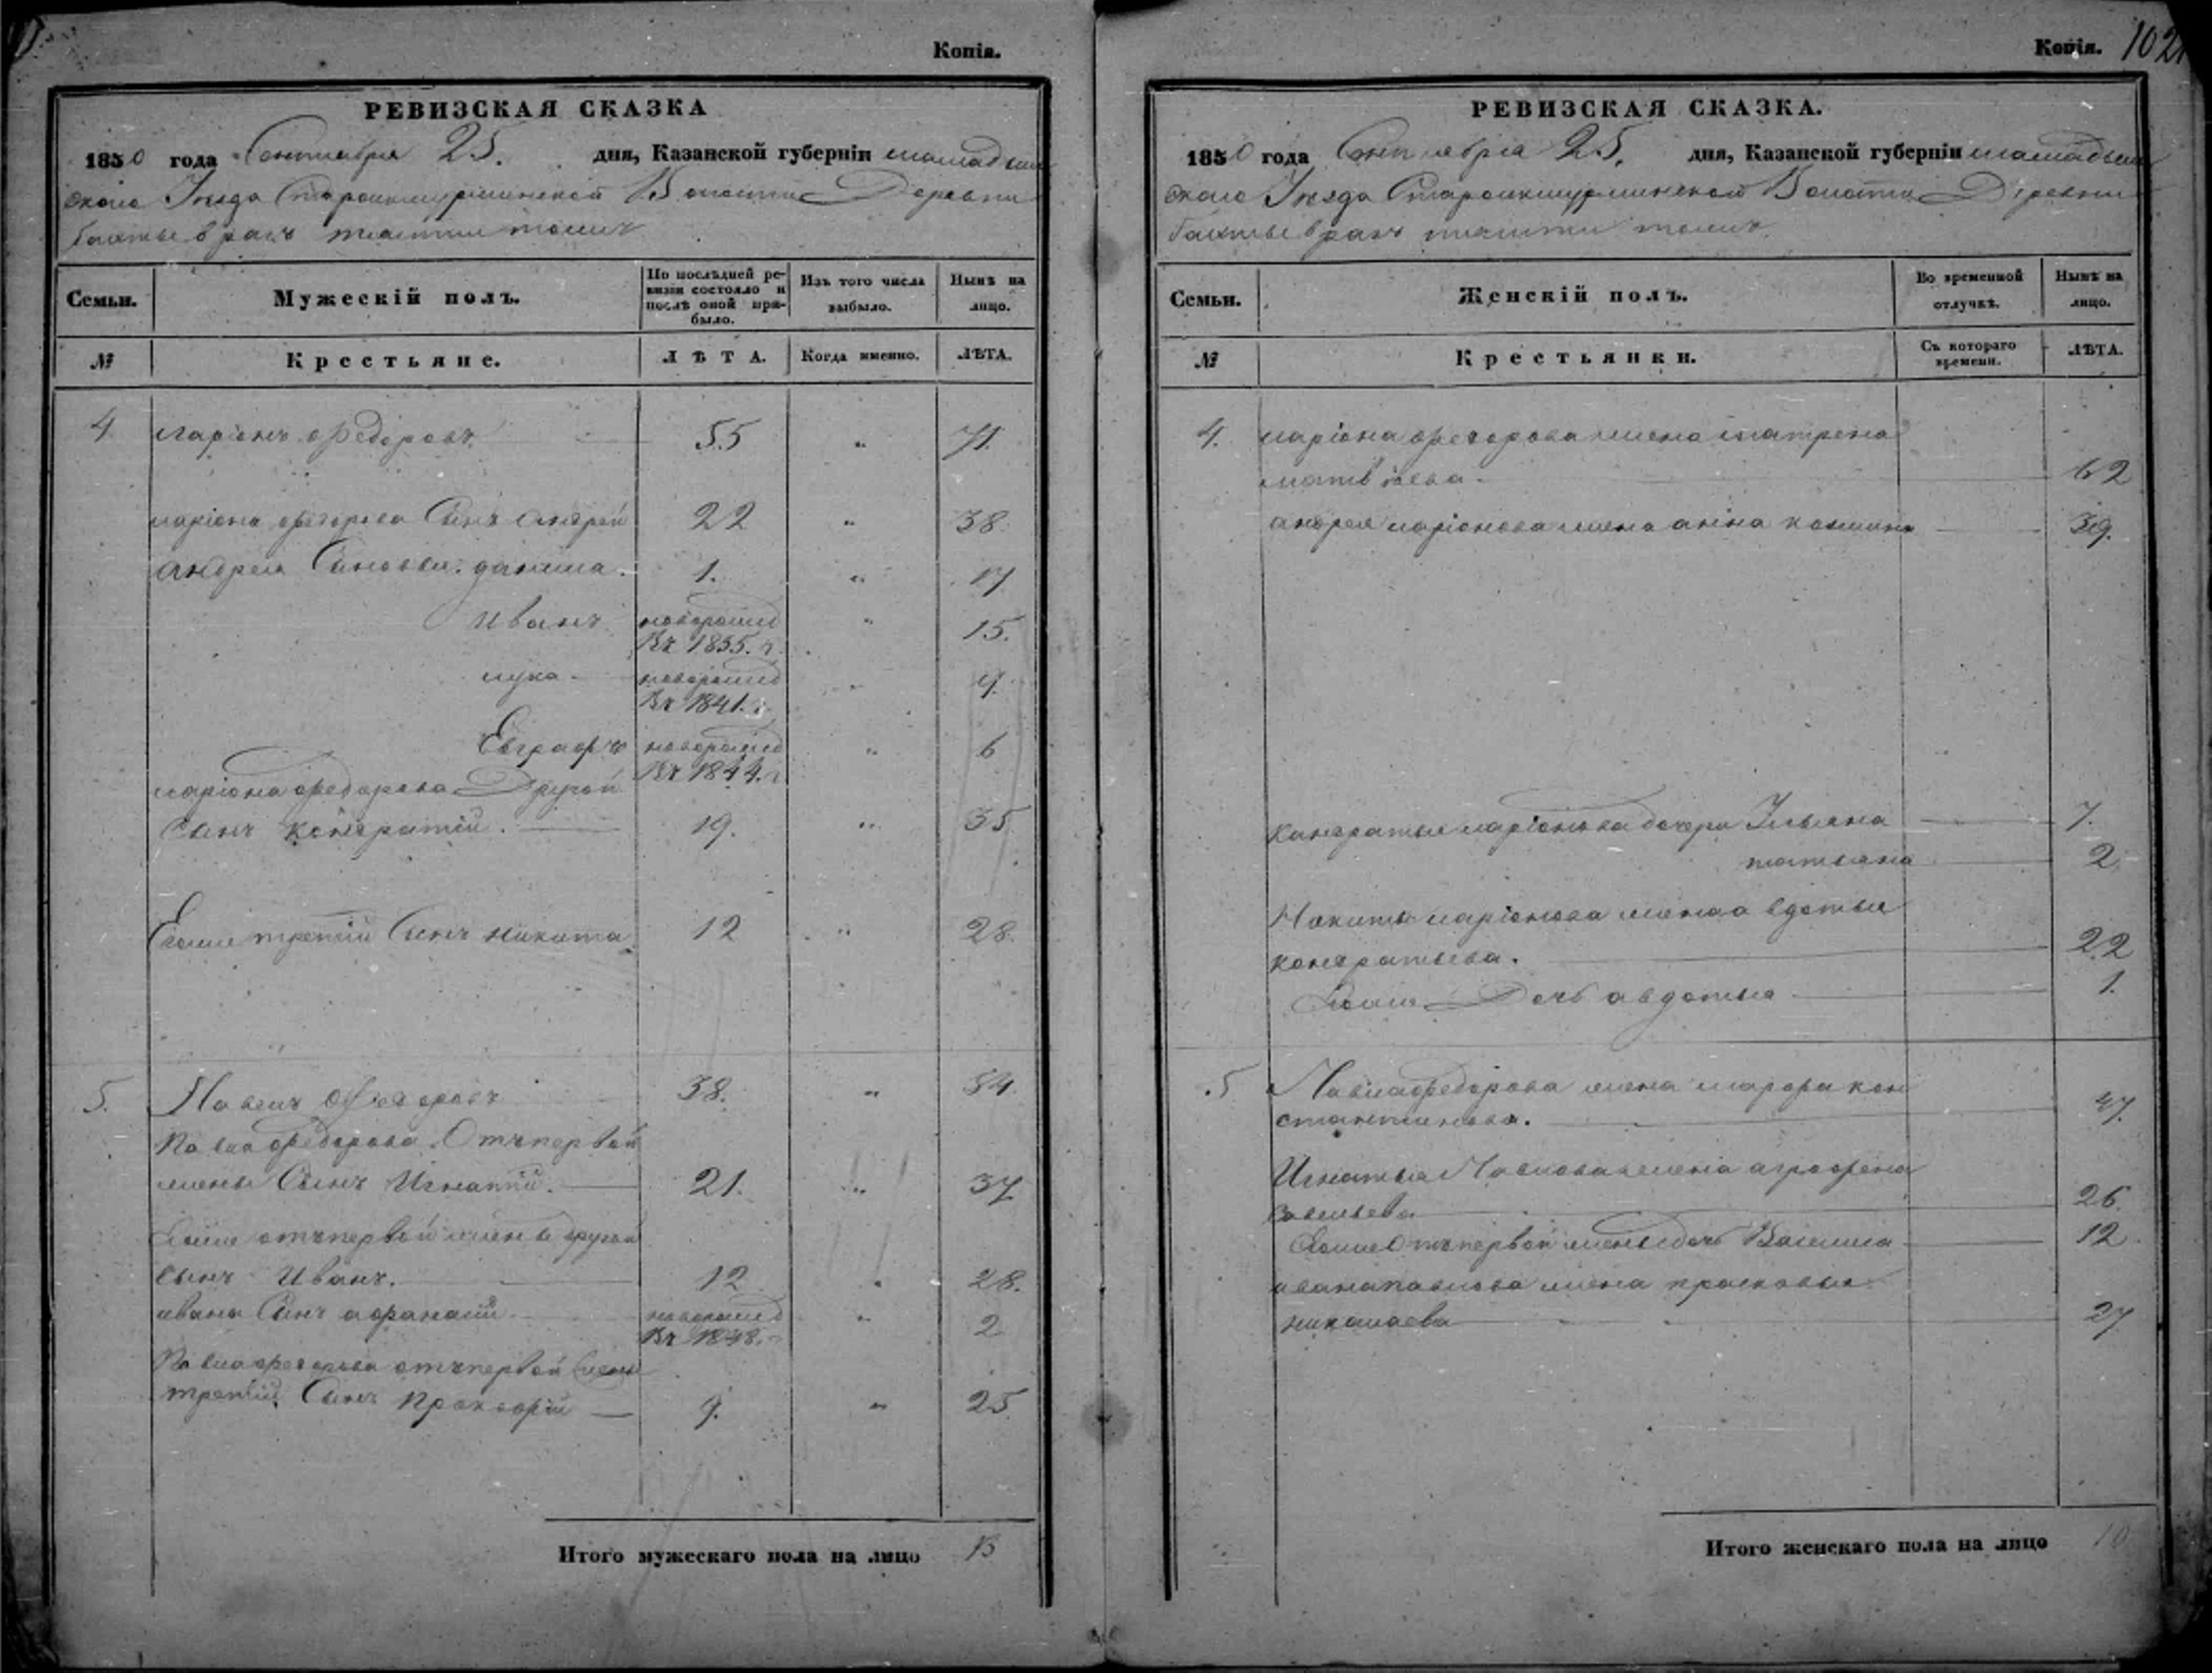 Копія.
РЕВИЗСКАЯ СКАЗКА
1850 года Сентября 25. дня, Казанской губерніи мамадыш
скаго Уезда Староикшурминской Волости Деревни
Ларіонъ Федоровъ. 55 " 71.
4
Семьи. Мужескій полъ. По послѣдней ревизіи состояло и послѣ оной прибыло. Изъ того числа выбыло. Нынѣ на лицо.
№ Крестьяне. ЛѢТА. Когда именно. ЛѢТА.
ларіона федорова Сынъ андрей 22 " 38.
андрея Сыновья: данила. 1. " 17
Иванъ новорожд " 15.
Въ 1835. г.
лука новорожд " 9.
Въ 1841. г.
Евграфъ новорожд " 6
Въ 1844. г.
ларіона федорова Другой
Сынъ кондратій. 19. " 35
Егоже третій Сынъ никита 12 " 28.
5. Павелъ Федоровъ 38. " 54.
Павла федорова Отъ первой
жены Сынъ Игнатій. 21. " 37
Егоже отъ первой жены другой
Сынъ Иванъ. 12 " 28.
ивана Сынъ афанасій новорожд " 2
Въ 1848. г.
Павла федорова отъ первой жены
третій Сынъ Прокофій 9. " 25
Итого мужескаго пола на лицо 13
Копія. 102
РЕВИЗСКАЯ СКАЗКА.
1850 года Сентября 25. дня, Казанской губерніи мамадыш
скаго Уезда Староикшурминской Волости Деревни
Семьи. Женскій полъ. Во временной отлучкѣ. Нынѣ на лицо.
№ Крестьянки. Съ котораго времени. ЛѢТА.
4. ларіона федорова жена матрена
матвѣева. 62
андрея ларіонова жена анна 39.
кандратья ларіонова дочери Ульяна 7.
татьяна 2
Никиты ларіонова жена авдотья
кондратьева. 22
Егоже Дочь авдотья 1.
5 Павла федорова жена марфа кон
стантинова. 47.
Игнатья Павлова жена аграфена
Савельева 26.
Егоже Отъ первой жены дочь Василиса 12
ивана павлова жена прасковья
николаева 27
Итого женскаго пола на лицо 10